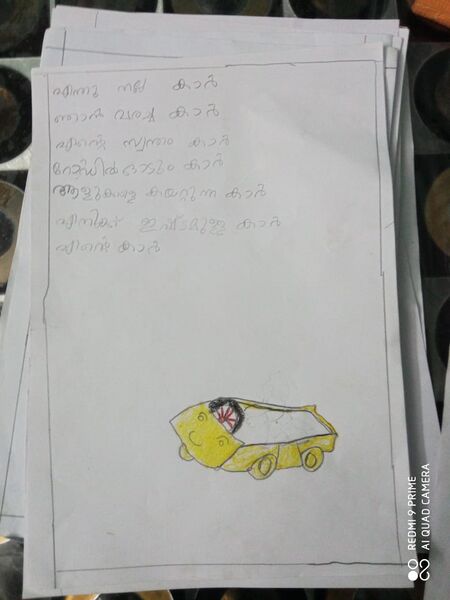 എന്തു നല്ല കാർ
ഞാൻ വരച്ച കാർ
എന്റെ സ്വന്തം കാർ
റോഡിൽ ഓടും കാർ
ആളുകളെ കയറ്റുന്ന കാർ
എനിക്ക് ഇഷ്ടമുള്ള കാർ
എന്റെ കാർ
REDMI 9 PRIME
AI QUAD CAMERA